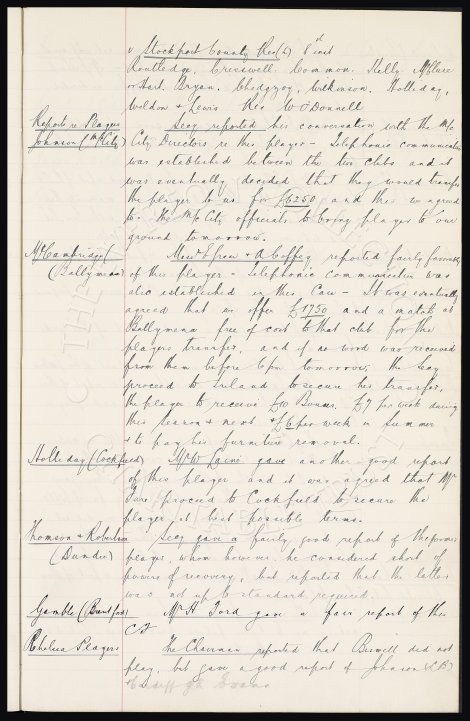 v Stockport County Res (h) 8th inst
Routledge, Cresswell. Common. Kelly, McClure
Hart. Bryan. Chedgzoy, Wilkinson. Holliday,
Weldon & Lewis Res W O'Donnell
Reports re Players
Johnson (M/c City)
Secy reported his conversation with the M/c
City Directors re this player - Telephonic communication
was established between the two clubs and it
was eventually decided that they would transfer
the player to us for £6250 and this was agreed
to. the M/c City officials to bring player to our
ground tomorrow.
McCambridge
(Ballymena)
Messrs Green & A Coffey reported fairly favorably
of this player - Telephonic communication was
also established in this Case - It was eventually
agreed that we offer £1750 and a match at
Ballymena free of cost to that club for the
players transfer, and if no word was received
from them before 6pm tomorrow, the Secy
proceed to Ireland to secure his transfer,
the player to receive £10 Bonus, £7 per week during
this season & next & £6 per week in Summer
& to pay his furniture removal.
Holliday (Cockfield)
Mr W gave another good report
of this player and it was agreed that Mr
proceed to Cockfield to secure the
player at best possible terms.
Thomson & Robertson
(Dundee)
Secy gave a fairly good report of the former
player, whom however he considered short of
powers of recovery, but reported that the latter
was not up to standard required.
Gamble (Brentford)
Mr H Ford gave a fair report of this
C.F
Chelsea Players
The Chairman reported that Biswell did not
play, but gave a good report of Johnson (L.B)